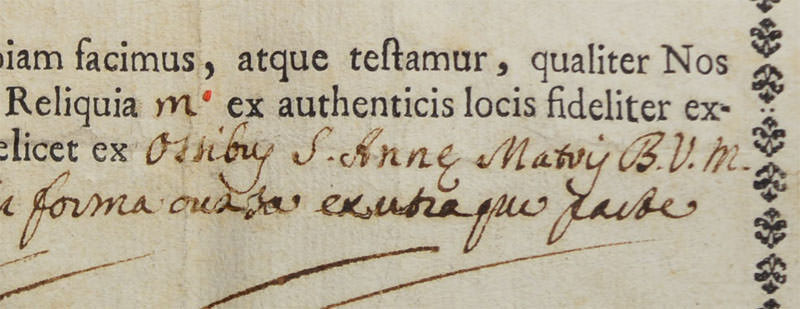 piam facimus, atque teſtamur, qualiter Nos
Reliquia m ex authenticis locis fideliter ex-
elicet ex Ossibus S. Annę Matris B.V.M.
forma ex utraque parte